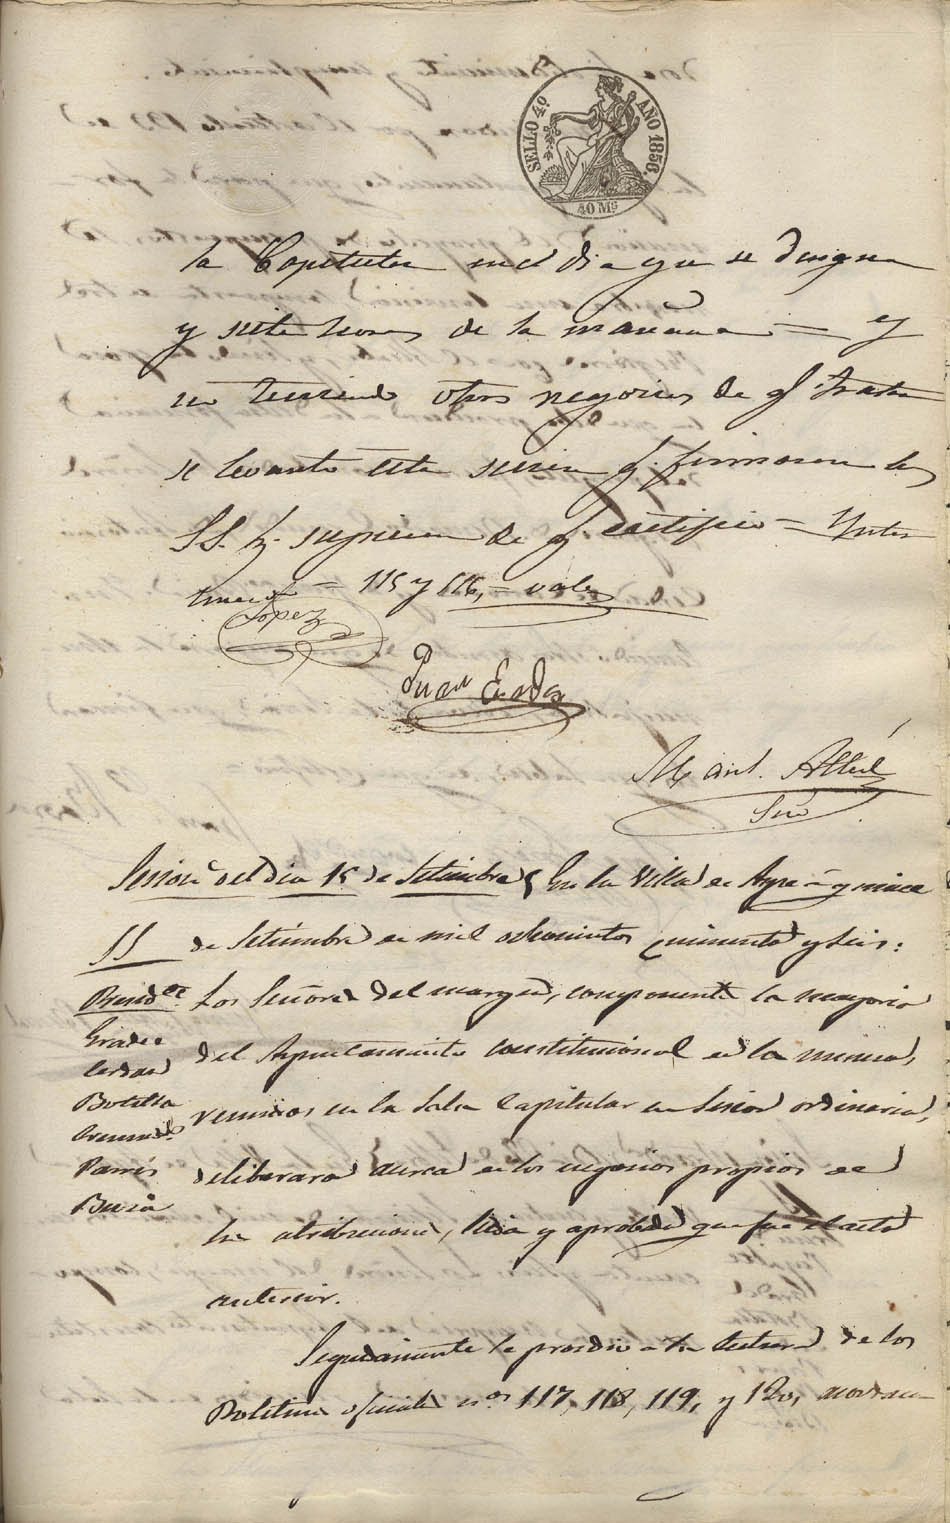 SELLO 4º AÑO 1856.
40 Ms
la Capitular en el dia que se designa
y siete horas de la mañana = y
no teniendo otros negocios de q. tratar
se levantó esta sesion q. firmaron los
SS. q. supieron de q. certifico = Entre
lineas = 115 y 116, = vale
Lopez
Juan Cerdan
Manl. Albert
Srio
Sesion del dia 15 de Setiembre En la Villa de Aspe a quince
SS de Setiembre de mil ochocientos cincuenta y seis:
Presidte Los Señores del margen, componente la mayoria
del Ayuntamiento constitucional de la misma,
Cerdan
Botella reunidos en la Sala Capitular en Sesion ordinaria,
Pavés deliberara acerca de los negocios propios de
su atribucione, leida y aprobada que fue el acta
anterior.
Seguidamente se procedio a la lectura de los
Boletines oficiales nos 117, 118, 119, y 120,